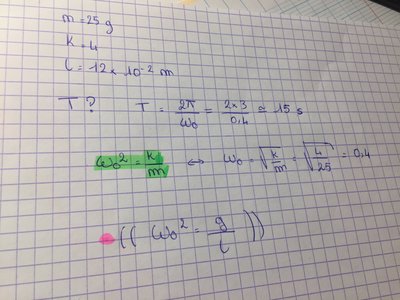 m = 25 g
K = 4
l = 12 × 10⁻² m
T ? T = 2π/ω₀ = 2×3/0,4 ≃ 15 s
ω₀² = k/m ⇔ ω₀ = √(k/m) = √(4/25) = 0,4
(( ω₀² = g/l ))